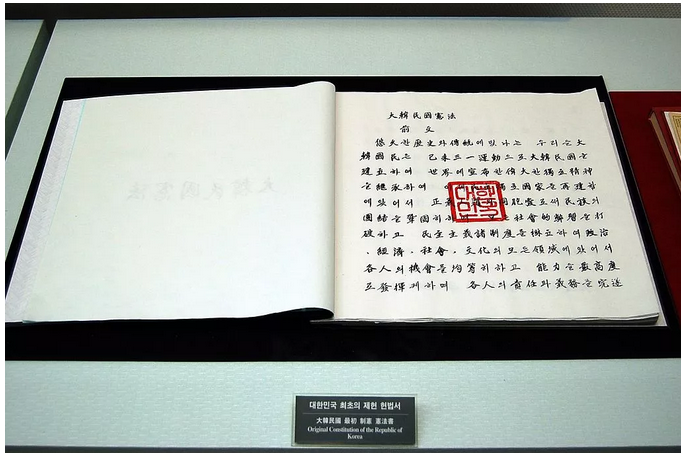 大韓民國憲法
大韓民國憲法
前文
悠久한歷史와傳統에빛나는 우리들大
韓國民은 己未三一運動으로大韓民國을
建立하여 世界에宣布한偉大한獨立精神
을繼承하여 獨立國家를再建함
에있어서 正義 同胞愛로써民族의
團結을鞏固히하며 모든社會的弊習을打
破하고 民主主義諸制度를樹立하여政治
、經濟、社會、文化의모든領域에있어서
各人의機會를均等히하고 能力을最高度
로發揮케하며 各人의責任과義務를完遂
대한민국 최초의 제헌 헌법서
大韓民國 最初 制憲 憲法書
Original Constitution of the Republic of
Korea